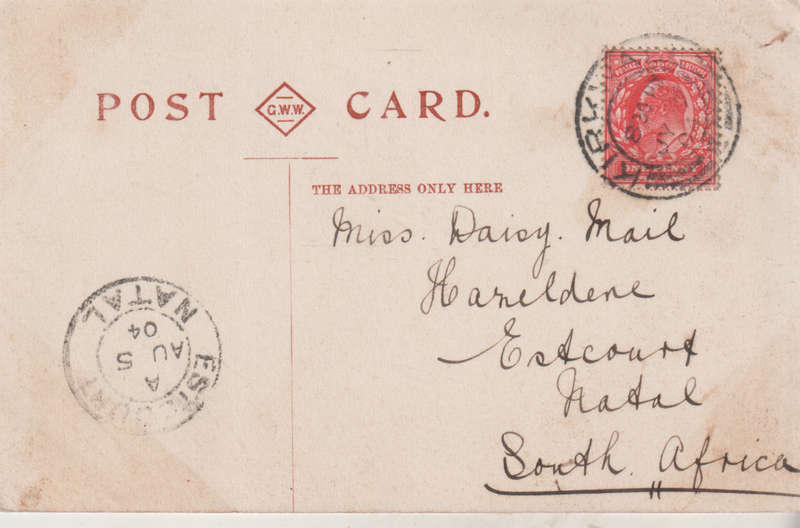 POST G.W.W. CARD.
THE ADDRESS ONLY HERE
Miss. Daisy. Mail
Hazeldene
Estcourt
Natal
South. Africa
NATAL
A
5
AU
04